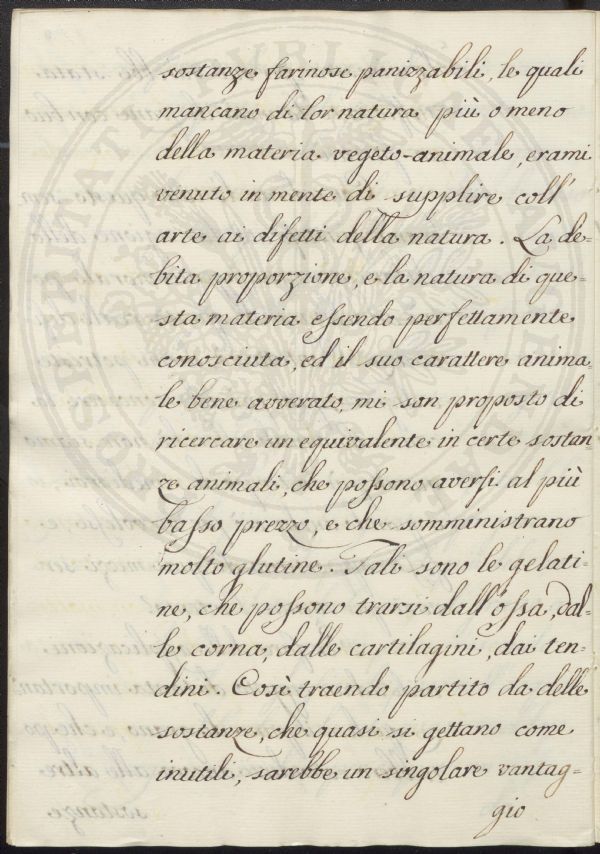 sostanze farinose panizzabili, le quali
mancano di lor natura più o meno
della materia vegeto-animale, erami
venuto in mente di supplire coll'
arte ai difetti della natura. La de-
bita proporzione, e la natura di que-
sta materia essendo perfettamente
conosciuta, ed il suo carattere anima-
le bene avverato, mi son proposto di
ricercare un equivalente in certe sostan-
ze animali, che possono aversi al più
basso prezzo, e che somministrano
molto glutine. Tali sono le gelati-
ne, che possono trarsi dall'ossa, dal-
le corna, dalle cartilagini, dai ten-
dini. Così traendo partito da delle
sostanze, che quasi si gettano come
inutili, sarebbe un singolare vantag-
gio